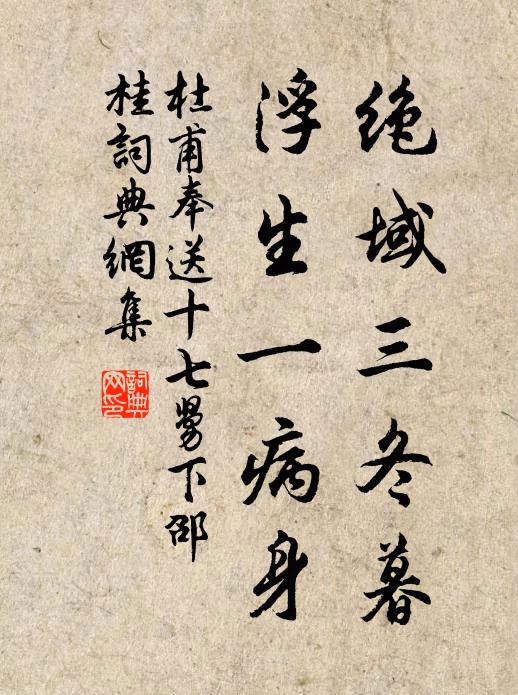 绝域三冬暮
浮生一病身
杜甫奉送十七舅下邵
桂詞典網集
詞典
网印